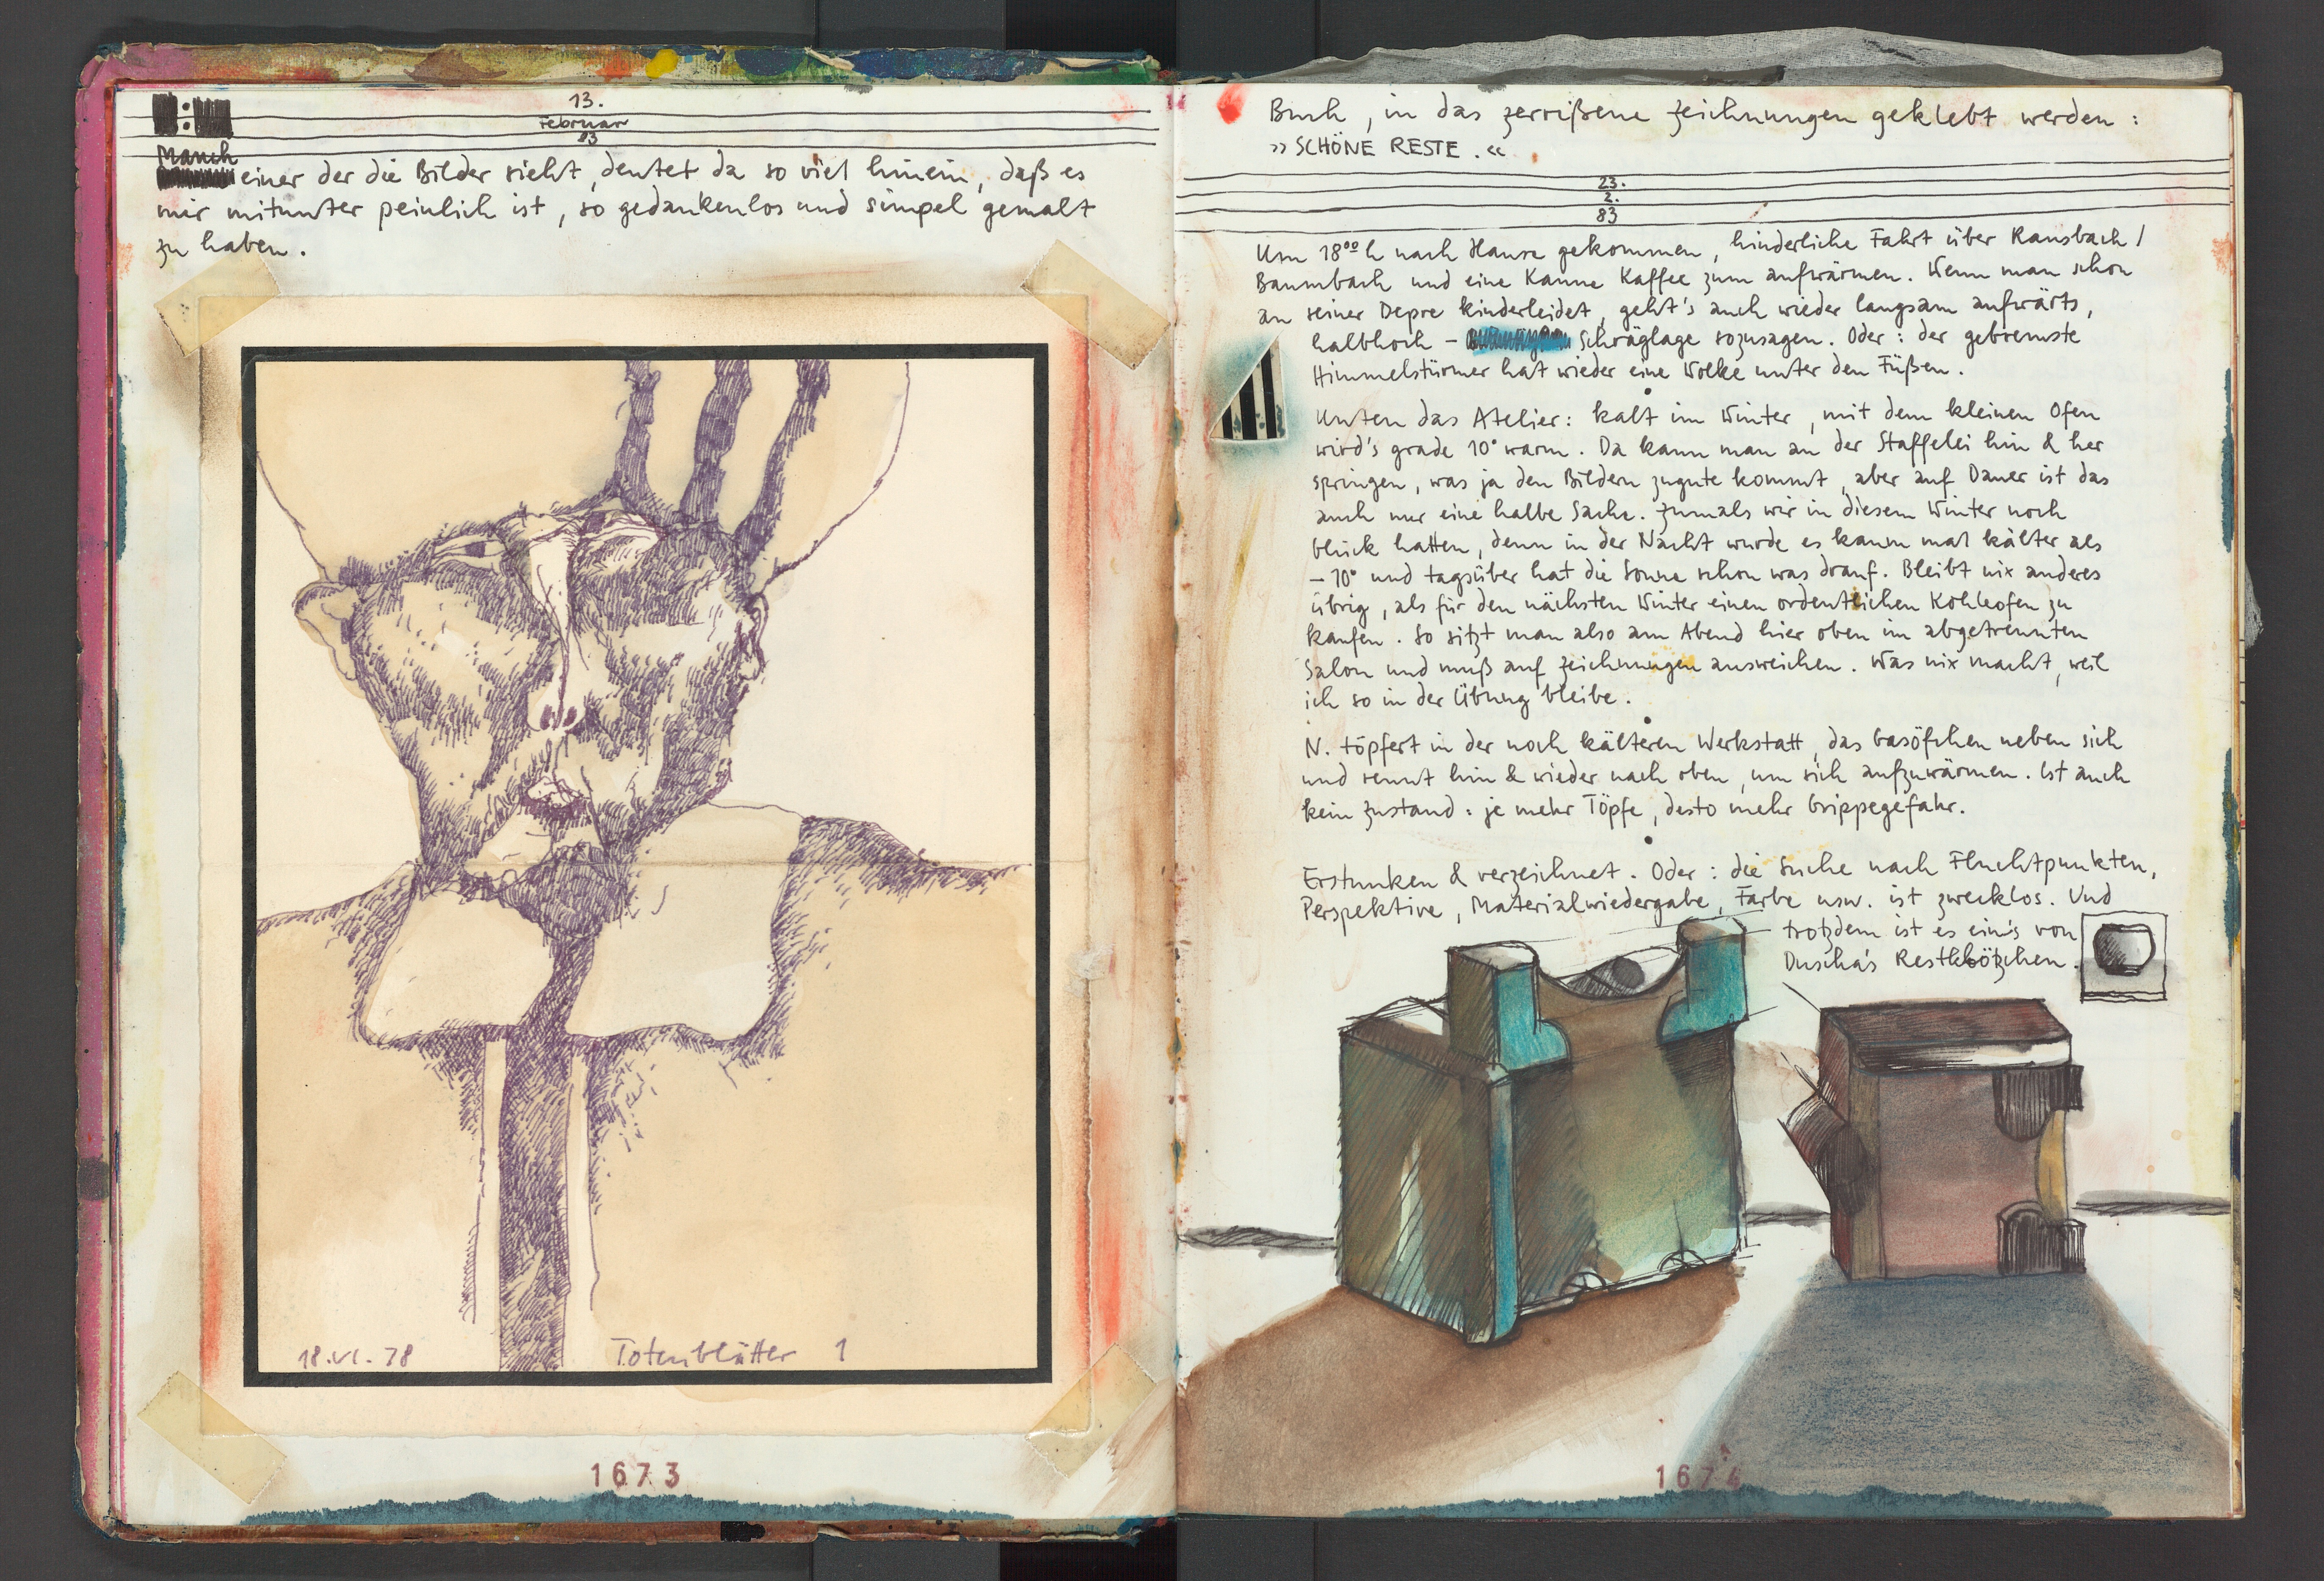 13.
Februar
83
Manch
einer der die Bilder sieht, deutet da so viel hinein, daß es
mir mitunter peinlich ist, so gedankenlos und simpel gemalt
zu haben.
18.VI.78 Totenblätter 1
1673
Buch, in das zerrißene Zeichnungen geklebt werden:
»SCHÖNE RESTE.«
23.
2.
83
Um 18⁰⁰h nach Hause gekommen, hinderliche Fahrt über Ransbach/
Baumbach und eine Kanne Kaffee zum aufwärmen. Wenn man schon
an seiner Depre kinderleidet, geht's auch wieder langsam aufwärts,
halbhoch - Schräglage sozusagen. Oder: der gebremste
Himmelstürmer hat wieder eine Wolke unter den Füßen.
Unten das Atelier: kalt im Winter, mit dem kleinen Ofen
wird's grade 10° warm. Da kann man an der Staffelei hin & her
springen, was ja den Bildern zugute kommt, aber auf Dauer ist das
auch nur eine halbe Sache. Zumals wir in diesem Winter noch
Glück hatten, denn in der Nacht wurde es kaum mal kälter als
-10° und tagsüber hat die Sonne schon was drauf. Bleibt nix anderes
übrig, als für den nächsten Winter einen ordentlichen Kohleofen zu
kaufen. So sitzt man also am Abend hier oben im abgetrennten
Salon und muß auf Zeichnungen ausweichen. Was nix macht, weil
ich so in der Übung bleibe.
N. töpfert in der noch kälteren Werkstatt, das Gasöfchen neben sich
und rennt hin & wieder nach oben, um sich aufzuwärmen. Ist auch
kein Zustand: je mehr Töpfe, desto mehr Grippegefahr.
Erstunken & verzeichnet. Oder: die Suche nach Fluchtpunkten,
Perspektive, Materialwiedergabe, Farbe usw. ist zwecklos. Und
trotzdem ist es ein's von
Duscha's Restklötzchen.
1674